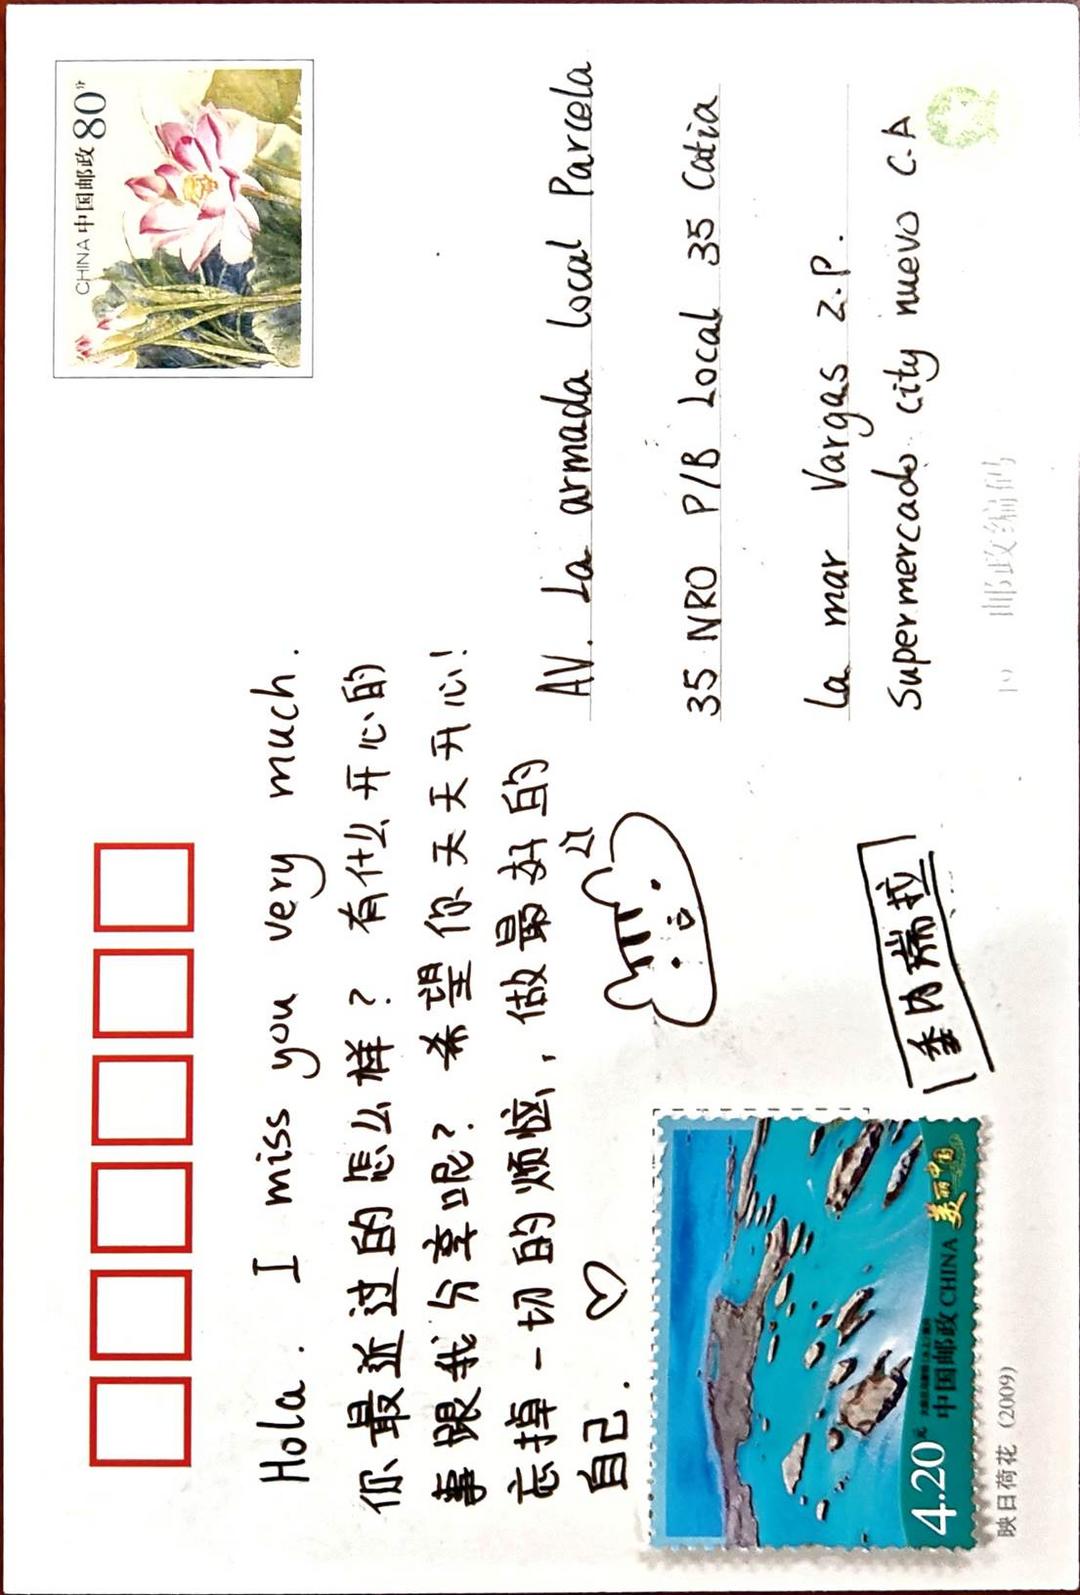 CHINA 中国邮政 80分
Hola. I miss you very much.
你最近过的怎么样？有什么开心的
事跟我分享呢？希望你天天开心！
忘掉一切的烦恼，做最好的
自己. ♡
AV. La armada Local Parcela
35 NRO P/B Local 35 Catia
La mar Vargas Z.P.
Supermercado city nuevo C.A
委内瑞拉
4.20元
中国邮政 CHINA
美丽中国
映日荷花 (2009)
邮政编码